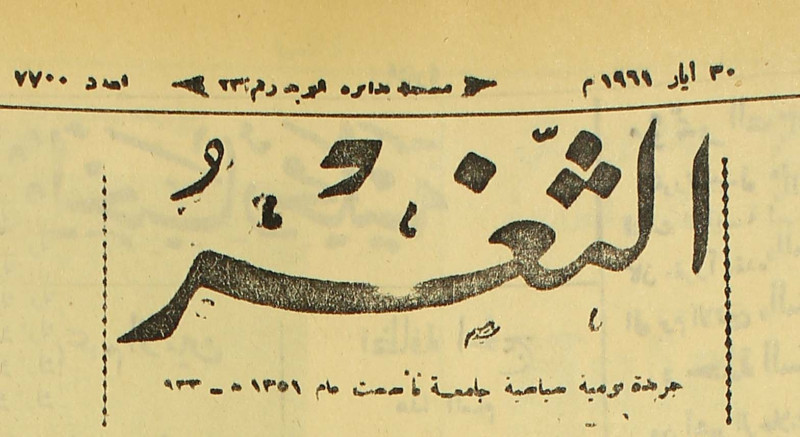 ٣٠ أيار ١٩٦١ م صفحة دائرة البريد رقم ٢٣ العدد ٧٧٠٠
الثغر
جريدة يومية صباحية جامعة تأسست عام ١٣٥١ ه - ٩٣٣